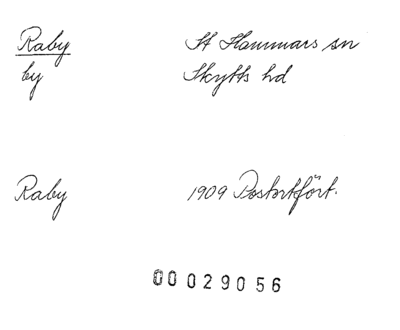 Raby St Hammars sn
by Skytts hd
Raby 1909 Postortfört.
00029056